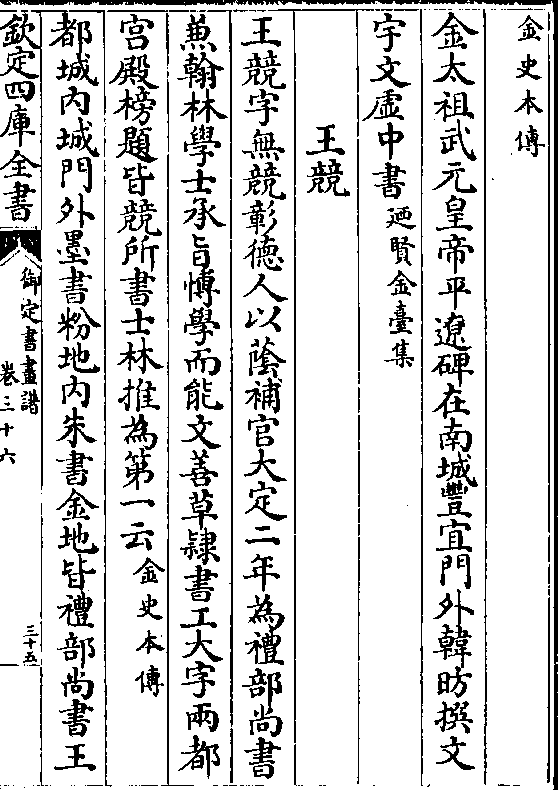 金史本傳
金太祖武元皇帝平遼碑在南城豐宜門外韓昉撰文
宇文虛中書廼賢金臺集
王競
王競字無競彰德人以蔭補官大定二年為禮部尚書
兼翰林學士承旨愽學而能文善草隸書工大字兩都
宫殿榜題皆競所書士林推為第一云金史本傳
都城内城門外墨書粉地内朱書金地皆禮部尚書王
欽定四庫全書
御定書畫譜
卷三十六
三十五